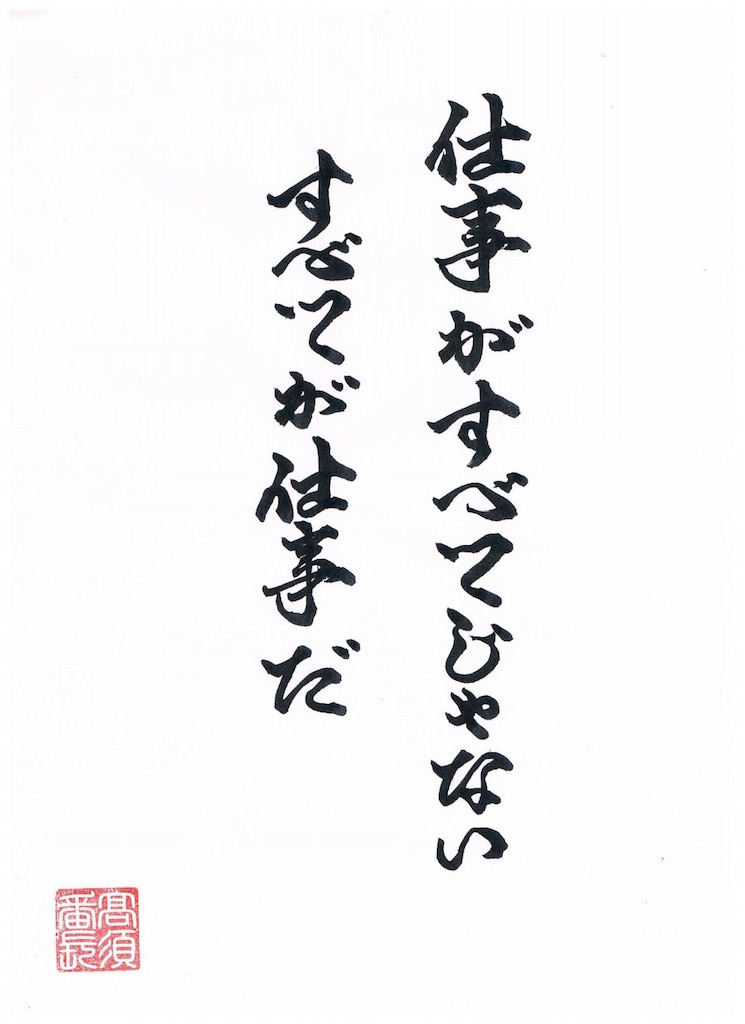 仕事がすべてじゃない
すべてが仕事だ
髙須
番長